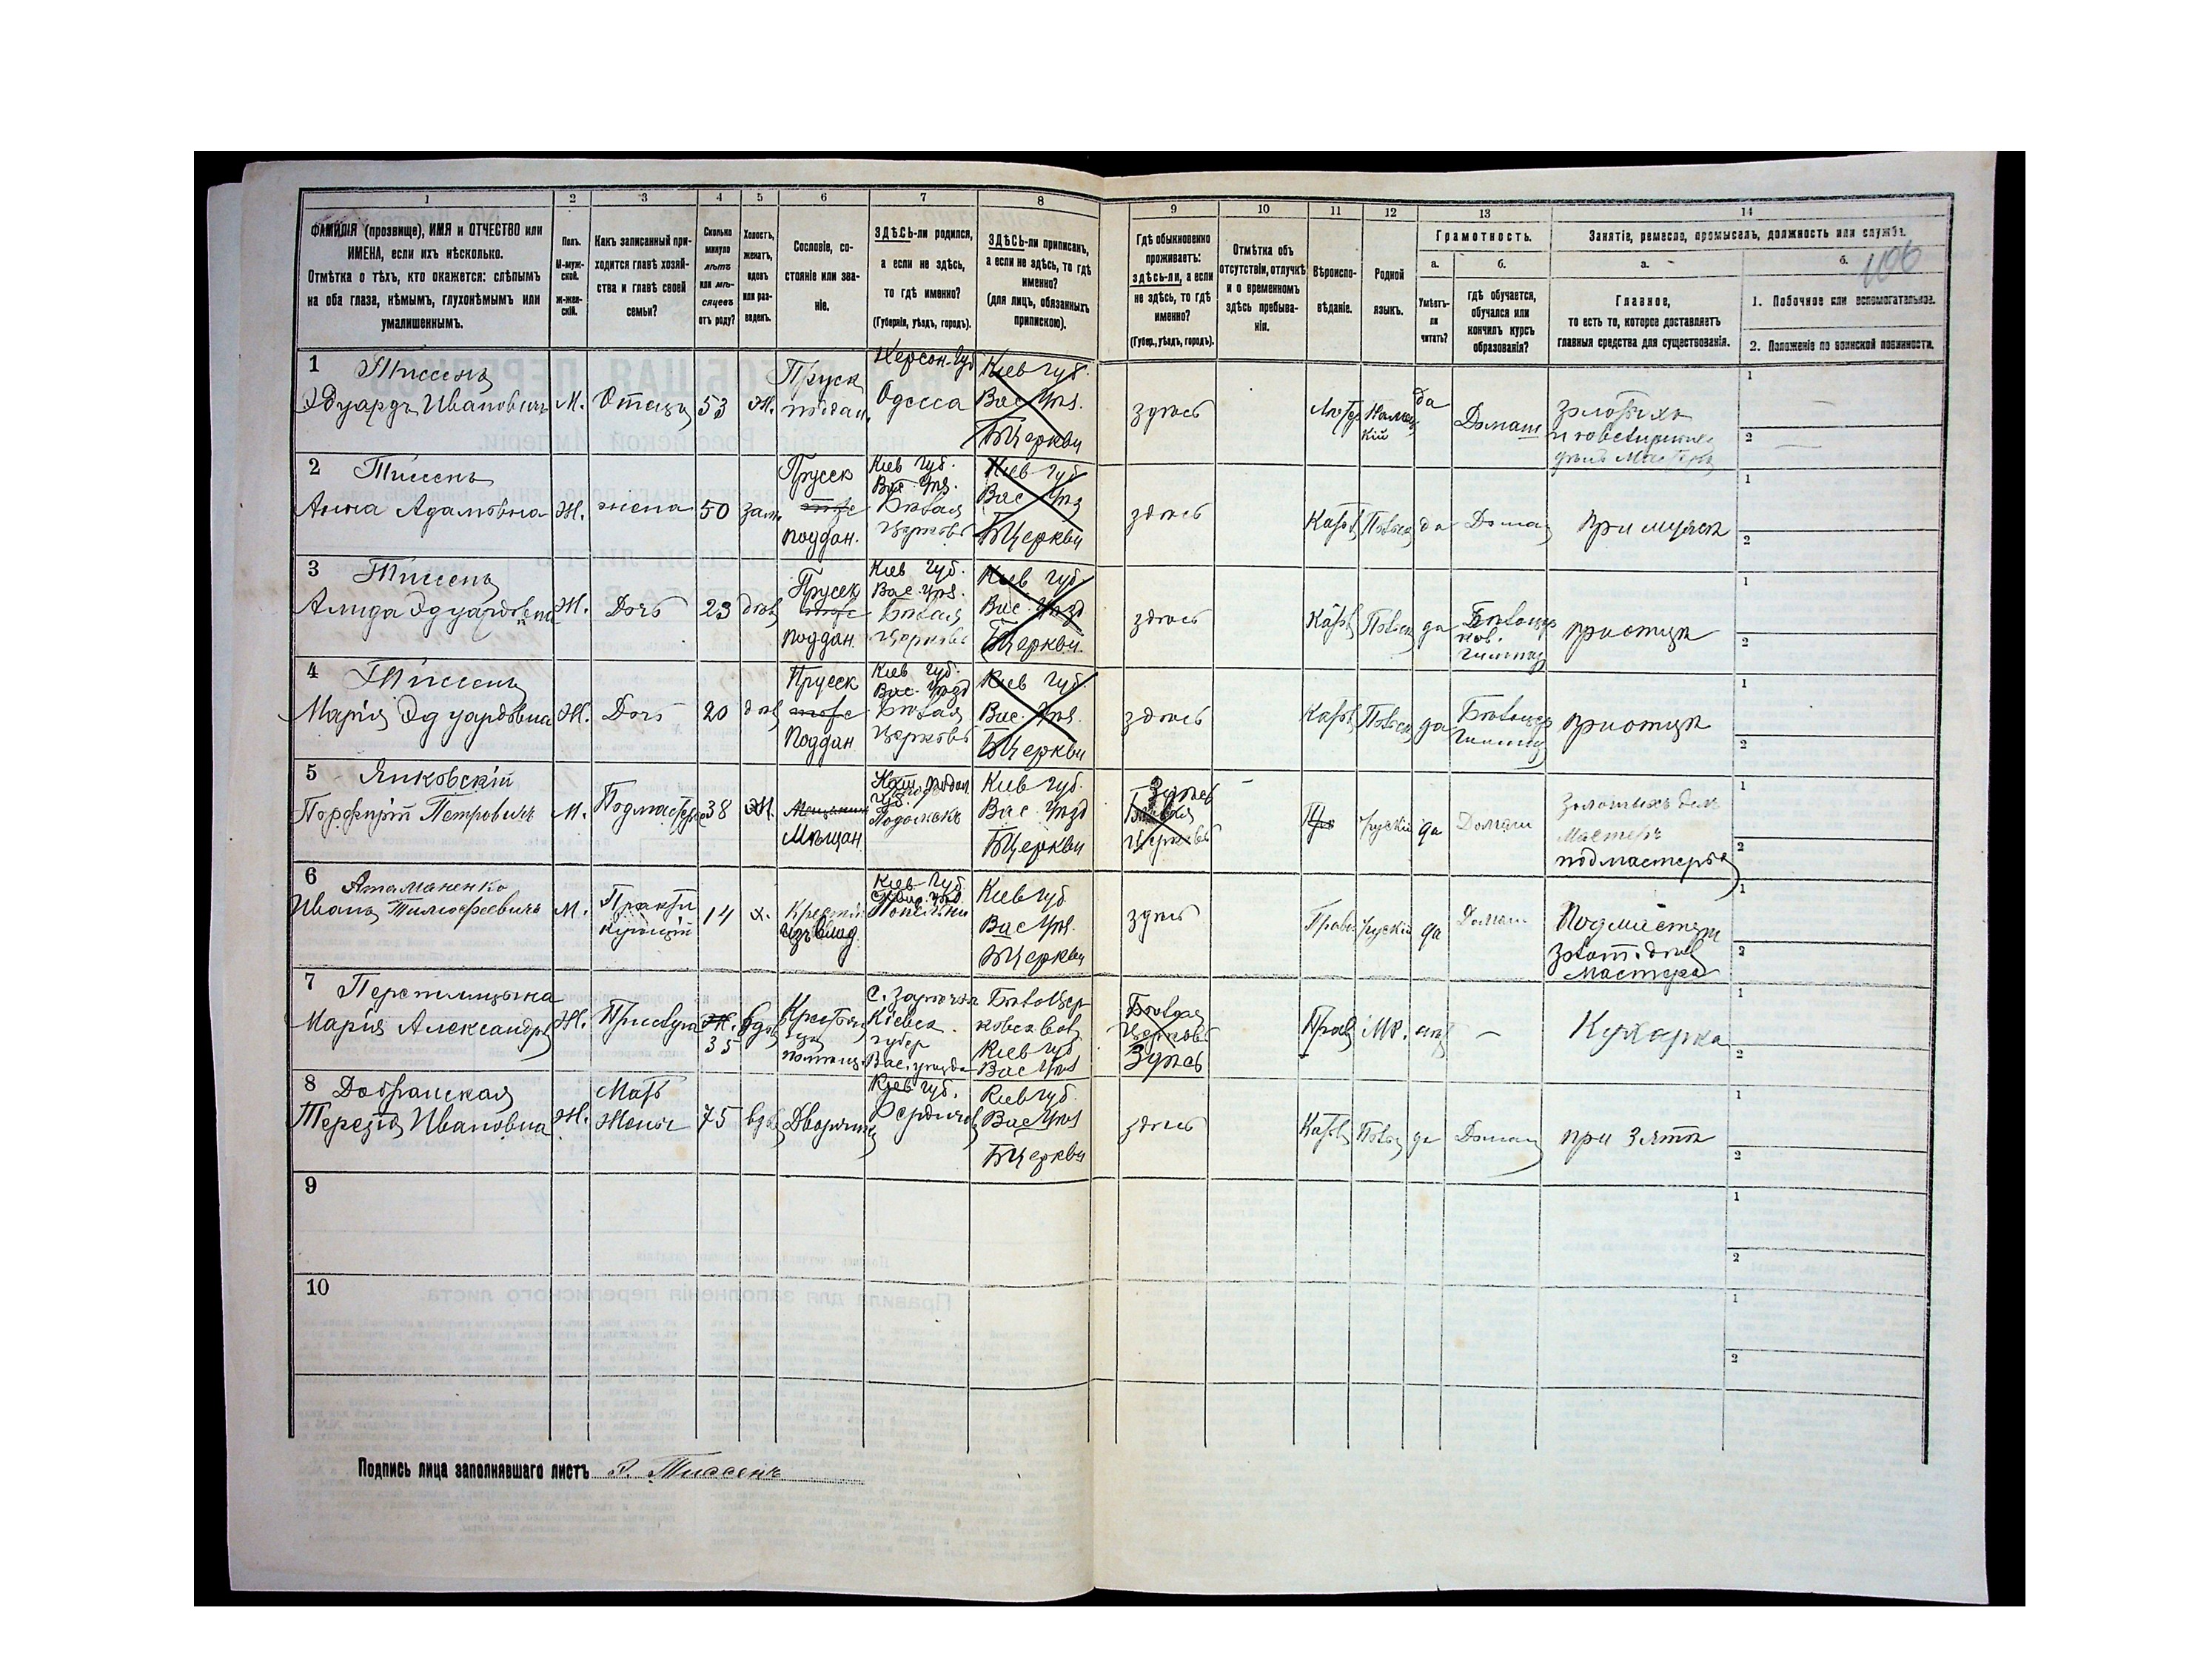 1 2 3 4 5 6 7 8 9 10 11 12 13 14
ФАМИЛІЯ (прозвище), ИМЯ и ОТЧЕСТВО или
ИМЕНА, если ихъ нѣсколько.
Отмѣтка о тѣхъ, кто окажется: слѣпымъ
на оба глаза, нѣмымъ, глухонѣмымъ или
умалишеннымъ.
Полъ.
М-муж-
ской.
Ж-жен-
скій.
Какъ записанный при-
ходится главѣ хозяй-
ства и главѣ своей
семьи?
Сколько
минуло
лѣтъ
или мѣ-
сяцевъ
отъ роду?
Холостъ,
женатъ,
вдовъ
или раз-
веденъ.
Сословіе, со-
стояніе или зва-
ніе.
ЗДѢСЬ-ли родился,
а если не здѣсь,
то гдѣ именно?
(Губернія, уѣздъ, городъ).
ЗДѢСЬ-ли приписанъ,
а если не здѣсь, то гдѣ
именно?
(для лицъ, обязанныхъ
припискою).
Гдѣ обыкновенно
проживаетъ:
здѣсь-ли, а если
не здѣсь, то гдѣ
именно?
(Губер., уѣздъ, городъ).
Отмѣтка объ
отсутствіи, отлучкѣ
и о временномъ
здѣсь пребыва-
ніи.
Вѣроиспо-
вѣданіе.
Родной
языкъ.
Грамотность.
а.
Умѣетъ-
ли
читать?
б.
гдѣ обучается,
обучался или
кончилъ курсъ
образованія?
Занятіе, ремесло, промыселъ, должность или служба.
а.
Главное,
то есть то, которое доставляетъ
главныя средства для существованія.
б.
106
1. Побочное или вспомогательное.
2. Положеніе по воинской повинности.
1
Тиссенъ
Эдуардъ Ивановичъ
М.
Отецъ
53
Ж.
Пруск
поддан.
Херсон. Губ
Одесса
Кіев губ.
Вас. Уѣз.
БЦеркви
здѣсь
Лютер
да
Домаш
1
2
2
Тиссенъ
Анна Адамовна
Ж.
жена
50
зам.
Прусск
поддан.
Кіев губ.
Вас. Уѣз.
Бѣлая
Церковь
Кіев губ
Вас Уѣз
БЦеркви
здѣсь
Катол
Польск
да
Домаш
при мужѣ
1
2
3
Тиссенъ
Алида Эдуардовна
Ж.
Дочь
23
дѣв
Прусск
поддан.
Кіев губ.
Вас. Уѣз.
Бѣлая
Церковь
Кіев губ.
Вас. Уѣзд
БЦеркви
здѣсь
Катол
Польск
да
Бѣлоцер
ков.
гимназ
при отцѣ
1
2
4
Тиссенъ
Марія Эдуардовна
Ж.
Дочь
20
дѣв
Прусск
Поддан
Кіев губ.
Вас. Уѣзд
Бѣлая
Церковь
Кіев губ.
Вас. Уѣз.
БЦеркви
здѣсь
Катол
Польск
да
Бѣлоцер
Гимназ
при отцѣ
1
2
5
Янковскій
Порфирій Петровичъ
М.
Подмастерье
38
Ж.
Мѣщан.
Кіев губ.
Вас. Уѣзд
БЦеркви
Здѣсь
Бѣлая
Церковь
Рускій
да
Домаш
Мастеръ
подмастерье
1
2
6
Атаманенко
Иванъ Тимофеевичъ
М.
14
х.
Кіев Губ
Кіев губ
Вас Уѣз.
БЦеркви
здѣсь
Прав
Рускій
да
Домаш
золот. дѣл
Мастера
1
2
7
Марія Александр
Ж.
Прислуга
35
вдов
Кіевск.
губер
Вас. уѣзда
Бѣлоцер
Кіев губ
Вас Уѣз
Бѣлая
Церковь
Здѣсь
Прав
—
Кухарка
1
2
8
Добранская
Терезія Ивановна
Ж.
Мать
Жены
75
вдв
Дворянка
Кіев губ.
Бердичев
Кіев губ.
Вас Уѣз
БЦеркви
здѣсь
Катол
Польс
да
Домаш
при зятѣ
1
2
9
1
2
10
1
2
Подпись лица заполнявшаго листъ Э. Тиссенъ